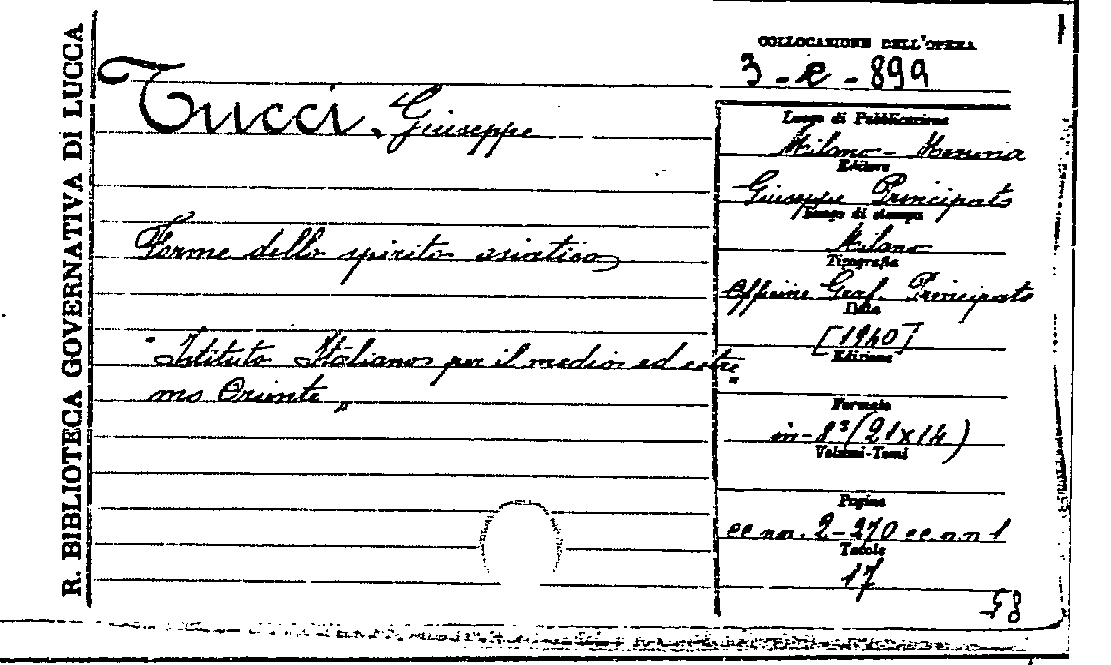 R. BIBLIOTECA GOVERNATIVA DI LUCCA
COLLOCAZIONE DELL'OPERA
3 - R - 899
Tucci, Giuseppe
Forme dello spirito asiatico
"Istituto Italiano per il medio ed estre
mo Oriente"
Luogo di Pubblicazione
Milano - Messina
Editore
Giuseppe Principato
Luogo di stampa
Milano
Tipografia
Officine Graf. Principato
Data
[1940]
Edizione
Formato
in-8° (21x14)
Volumi-Tomi
Pagine
cc nn. 2-270 cc nn 1
Tavole
17
58